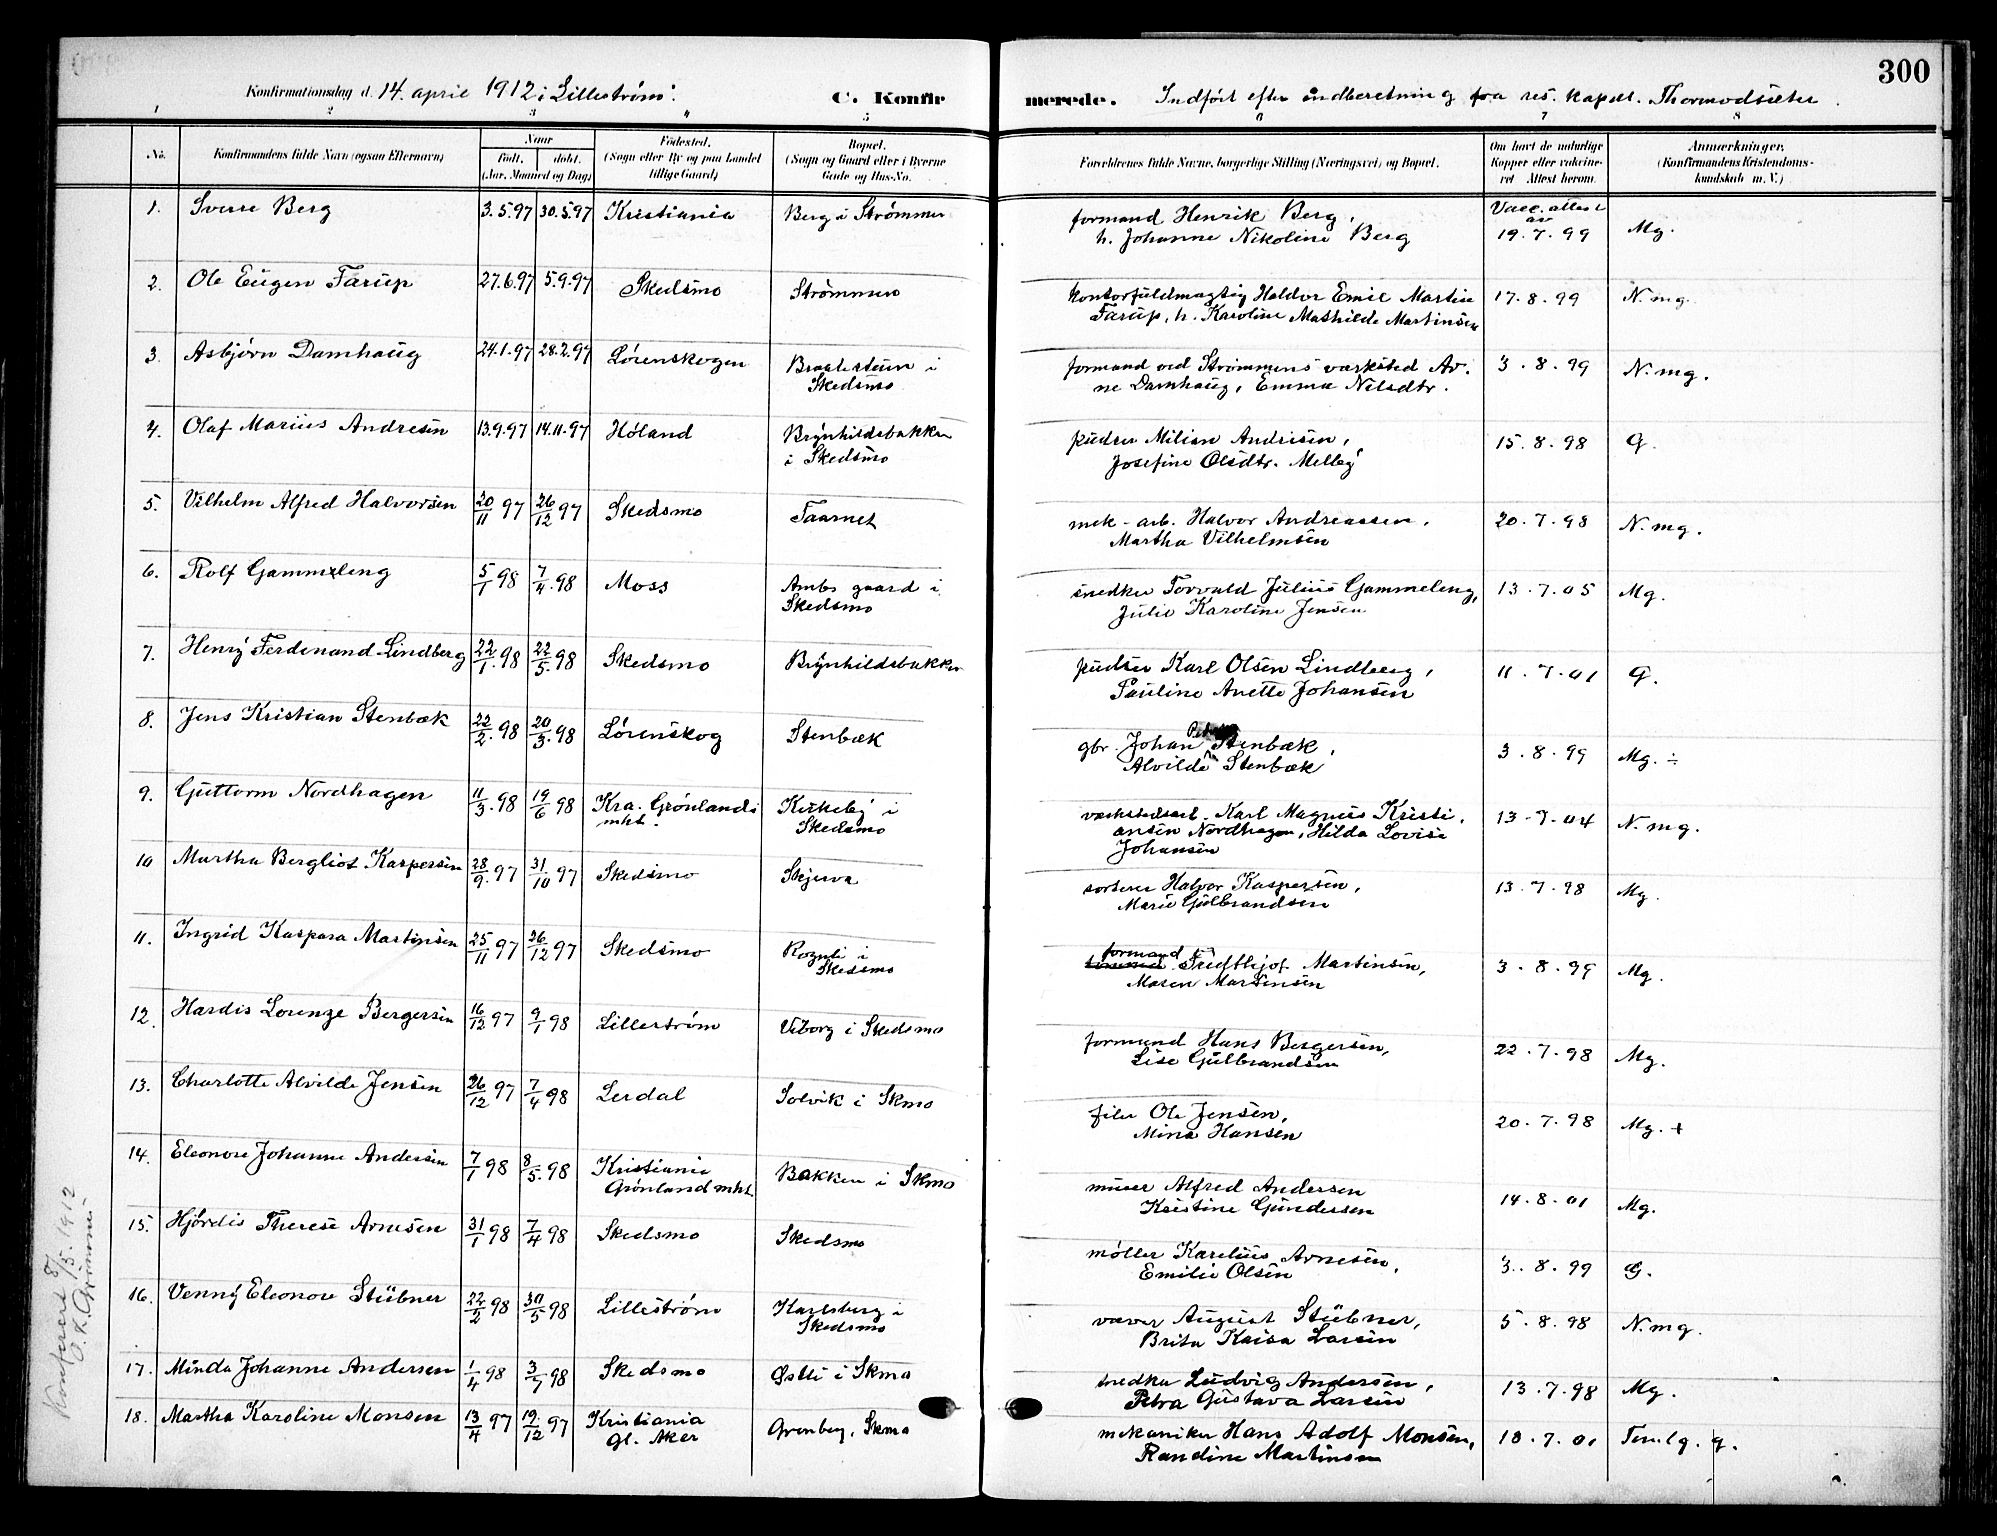 300
Konfirmationsdag d. 14. april 1912 i Lillestrøm.
C. Konfirmerede. Indført efter indberetning fra res. kapel. Thormodsæter
1 2 3 4 5 6 7 8
No. Konfirmandens fulde Navn (ogsaa Efternavn) Naar født. døbt. (Aar, Maaned og Dag) Fødested. (Sogn eller By og paa Landet tillige Gaard) Bopæl. (Sogn og Gaard eller i Byerne Gade og Hus-No. Forældrenes fulde Navne, borgerlige Stilling (Næringsvei) og Bopæl. Om havt de naturlige Kopper eller vaccineret Attest herom. Anmærkninger. (Konfirmandens Kristendomskundskab m. V.)
1. Sverre Berg 3.5.97 30.5.97 Kristiania Berg i Strømmen formand Henrik Berg, Vacc. attest av
h. Johanne Nikoline Berg 19.7.99 Mg.
2. Ole Eugen Farup 27.6.97 5.9.97 Skedsmo Strømmen kontorfuldmægtig Haldor Emil Martin 17.8.99 N.mg.
Farup, h. Karoline Mathilde Martinsen
3. Asbjørn Damhaug 24.1.97 28.2.97 Lørenskogen i formand ved Strømmens værksted Ar- 3.8.99 N.mg.
Skedsmo ne Damhaug, Emma Nilsdtr.
4. Olaf Marius Andresen 13.9.97 14.11.97 Høland Brynhildsbakken pudser Milian Andresen, 15.8.98 G.
i Skedsmo Josefine Olsdtr. Melleby
5. Vilhelm Alfred Halvorsen 20/11 97 26/12 97 Skedsmo Taarnet mek-arb. Halvor Andreassen, 20.7.98 N.mg.
Martha Vilhelmsen
6. Rolf Gammeleng 5/1 98 7/4 98 Moss gaard i snedker Torvald Julius Gammeleng, 13.7.05 Mg.
Skedsmo Julie Karoline Jensen
7. Henry Ferdenand Lindberg 22/1 98 22/5 98 Skedsmo Brynhildsbakken pudser Karl Olsen Lindberg, 11.7.01 G.
Pauline Anette Johansen
8. Jens Kristian Stenbæk 22/2 98 20/3 98 Lørenskog Stenbæk gbr. Johan Stenbæk, 3.8.99 Mg. ÷
Alvilde Stenbæk
9. Guttorm Nordhagen 11/3 98 19/6 98 Kra. Grønlands Kirkeby i verkstedsarb. Karl Magnus Kristi- 13.7.04 N.mg.
mht. Skedsmo ansen Nordhagen, Hilda Lovise
Johansen
10 Martha Bergliot Kaspersen 28/9 97 31/10 97 Skedsmo Skjerva sorterer Halvor Kaspersen, 13.7.98 Mg.
Marie Gulbrandsen
11. Ingrid Kaspara Martinsen 25/11 97 26/12 97 Skedsmo Rognli i formand Fridthjof Martinsen, 3.8.99 Mg.
Skedsmo Maren Martinsen
12. Hardis Lorenze Bergersen 16/12 97 9/1 98 Lillestrøm Viborg i Skedsmo formand Hans Bergersen, 22.7.98 Mg.
Lise Gulbrandsen
13. Charlotte Alvilde Jensen 26/12 97 7/4 98 Lerdal Solvik i Skmo filer Ole Jensen, 20.7.98 Mg. +
Mina Hansen
14. Eleonore Johanne Andersen 7/1 98 8/5 98 Kristiania Bakken i Skmo murer Alfred Andersen 14.8.01 Mg.
Grønland mht. Kristine Gundersen
15. Hjørdis Therese Arnesen 31/1 98 7/4 98 Skedsmo Skedsmo møller Karelius Arnesen, 3.8.99 G.
Emilie Olsen
16. Venny Eleonore Stübner 22/2 98 30/5 98 Lillestrøm Karlsberg i væver August Stübner, 5.8.98 N.mg.
Skedsmo Brita Kaisa Larsen
17. Minda Johanne Andersen 1/4 98 3/7 98 Skedsmo Østli i Skmo snedker Ludvig Andersen, 13.7.98 Mg.
Petra Gustava Larsen
18. Martha Karoline Monsen 13/4 97 19/12 97 Kristiania Grenberg, Skmo mekaniker Hans Adolf Monsen, 18.7.01 Temlg. g.
gl. Aker Randine Martinsen
Konfereret 8/5. 1912
O. K. Grimnes